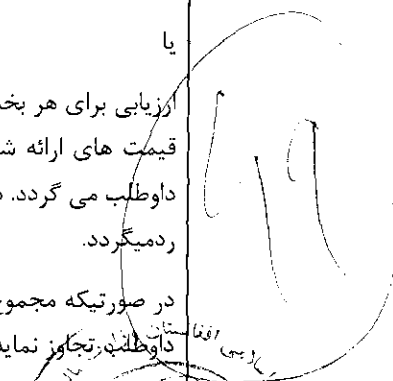 یا
ارزیابی برای هر بخ
قیمت های ارائه ش
داوطلب می گردد. د
ردمیگردد.
در صورتیکه مجموع
داوطلب تجاوز نماید
افغانستان